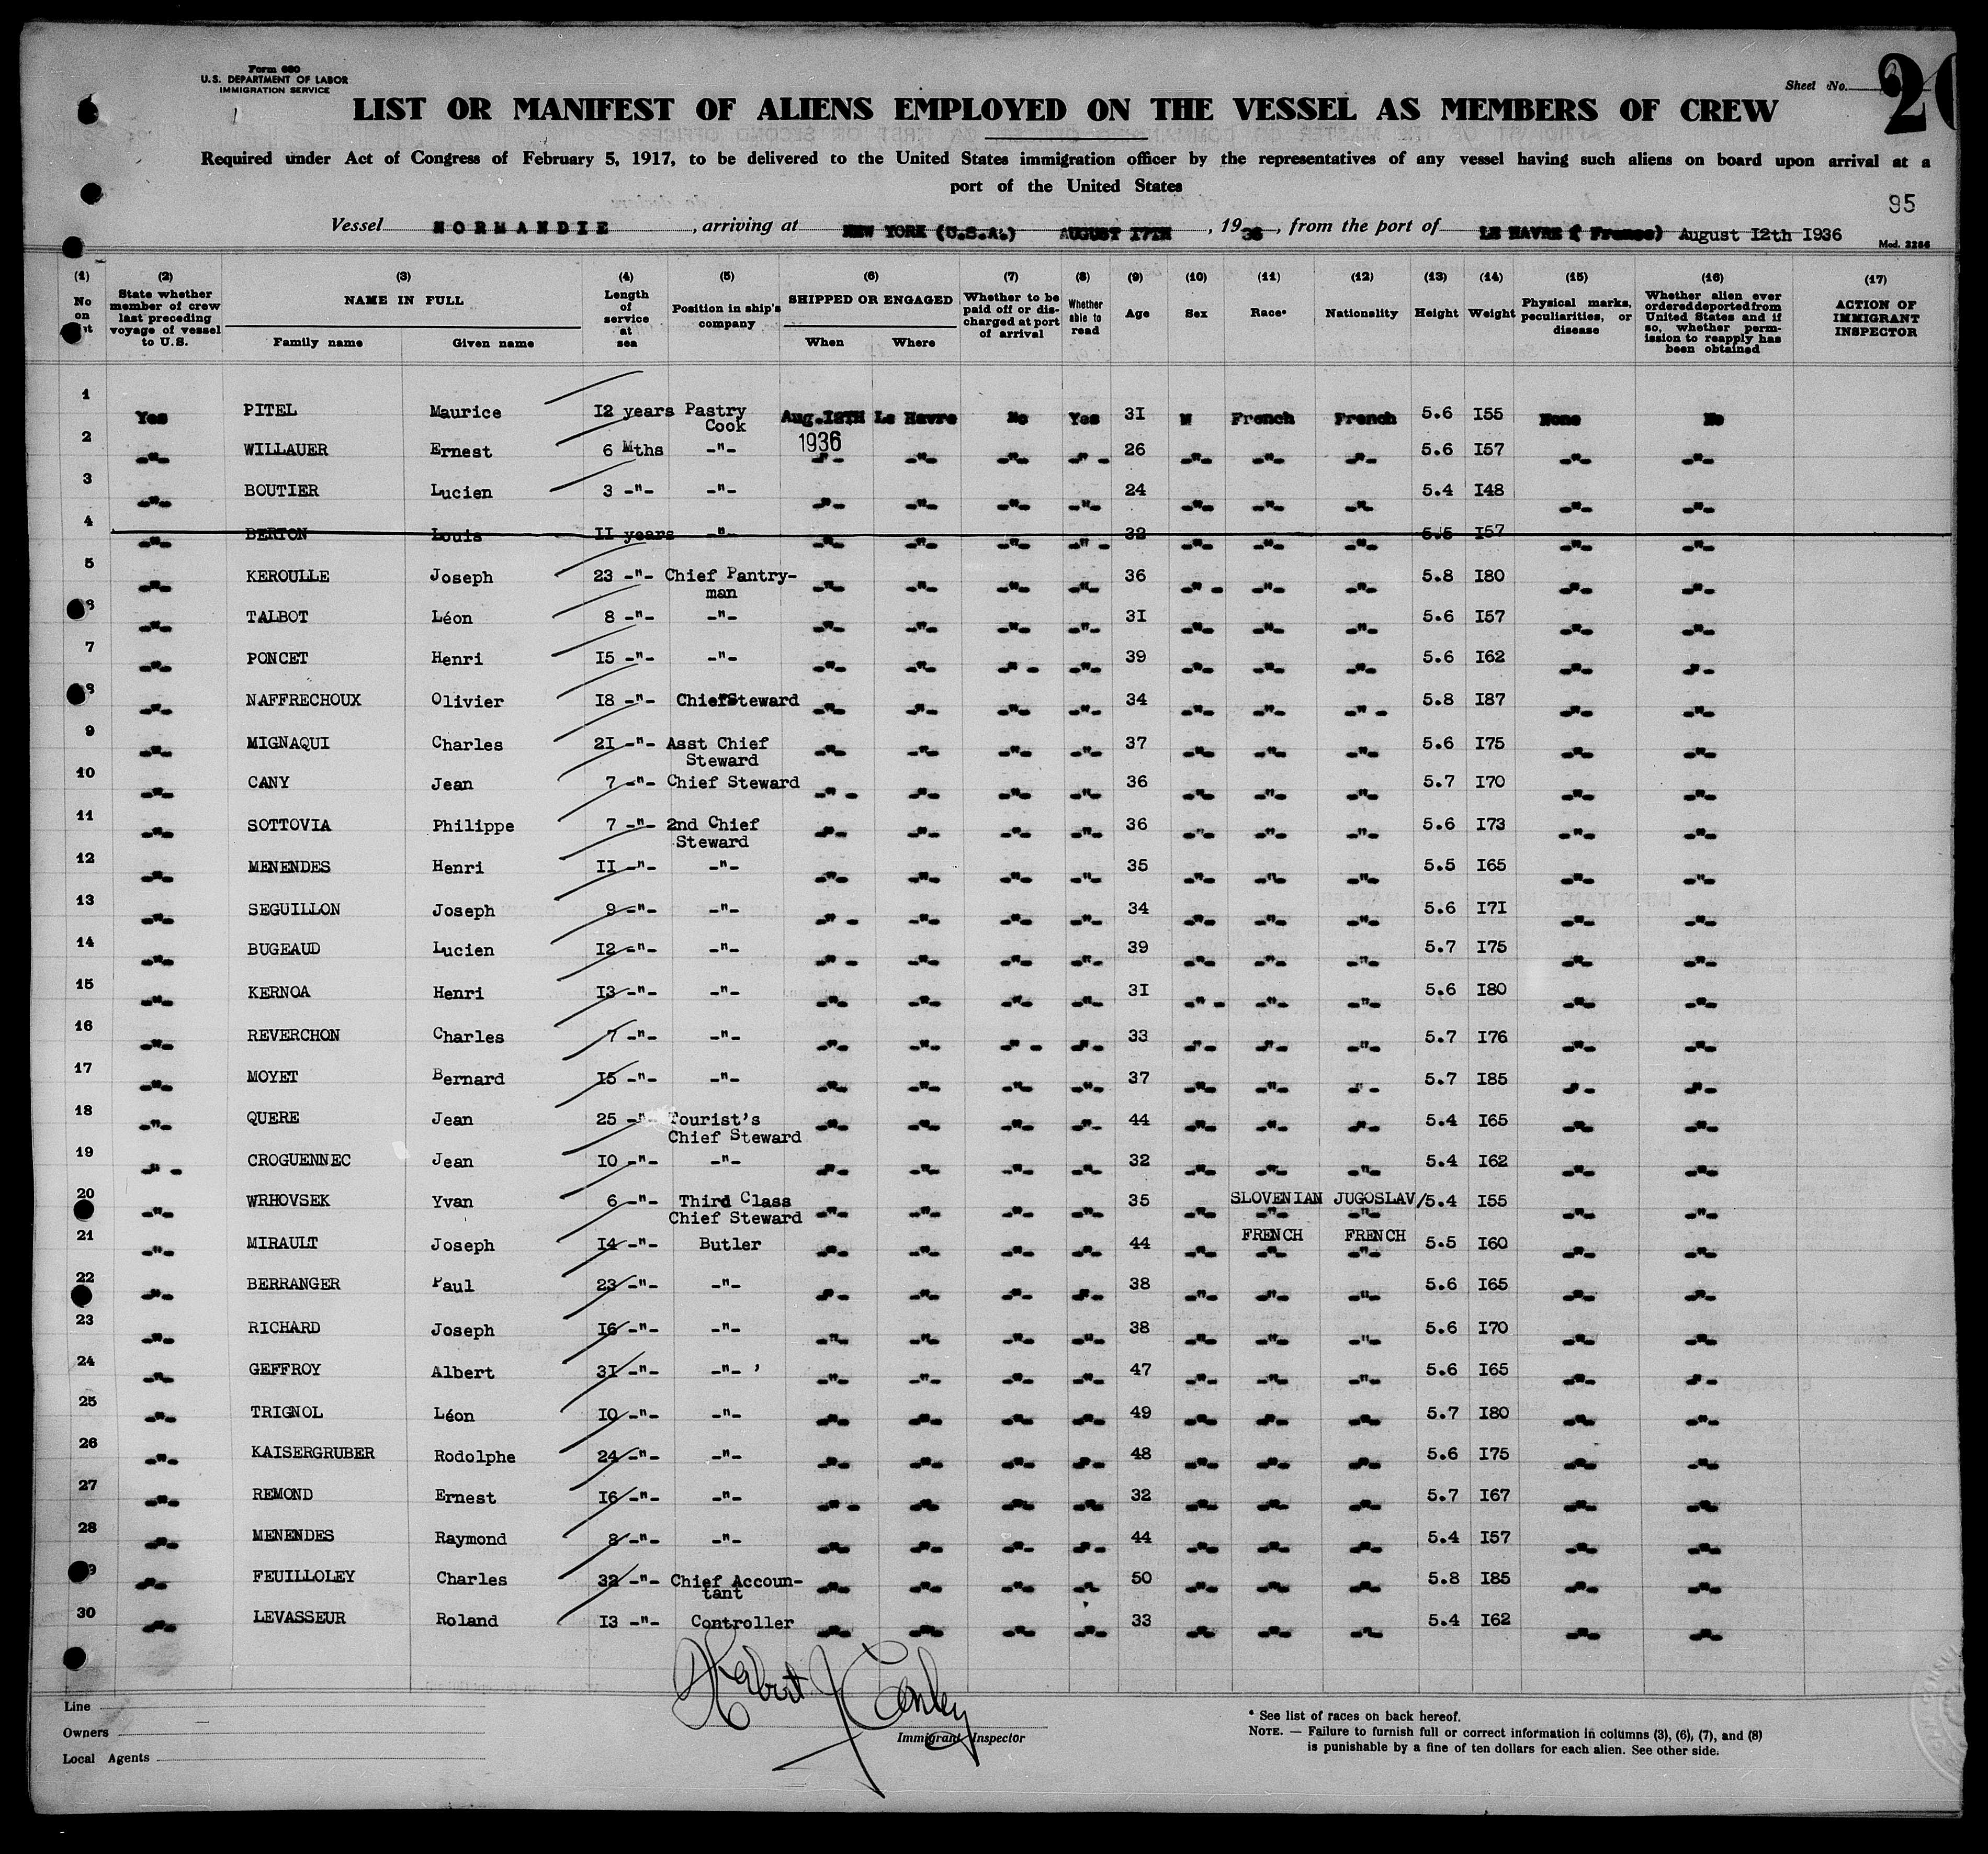 Form 680
U.S. DEPARTMENT OF LABOR
IMMIGRATION SERVICE
Sheet No.
2
LIST OR MANIFEST OF ALIENS EMPLOYED ON THE VESSEL AS MEMBERS OF CREW
Required under Act of Congress of February 5, 1917, to be delivered to the United States immigration officer by the representatives of any vessel having such aliens on board upon arrival at a
port of the United States
95
Vessel NORMANDIE, arriving at NEW YORK (U.S.A.) AUGUST I7TH, 1936, from the port of LE HAVRE ( France) August I2th I936
Mod. 2286
(1) No on list
(2) State whether member of crew last preceding voyage of vessel to U.S.
(3) NAME IN FULL Family name Given name
(4) Length of service at sea
(5) Position in ship's company
(6) SHIPPED OR ENGAGED When Where
(7) Whether to be paid off or discharged at port of arrival
(8) Whether able to read
(9) Age
(10) Sex
(11) Race*
(12) Nationality
(13) Height
(14) Weight
(15) Physical marks, peculiarities, or disease
(16) Whether alien ever ordered deported from United States and if so, whether permission to reapply has been obtained
(17) ACTION OF IMMIGRANT INSPECTOR
1 Yes PITEL Maurice I2 years Pastry Cook Aug.I2TH 1936 Le Havre No Yes 3I M French French 5.6 I55 None No
2 -"- WILLAUER Ernest 6 Mths -"- -"- -"- -"- -"- 26 -"- -"- -"- 5.6 I57 -"- -"-
3 -"- BOUTIER Lucien 3 -"- -"- -"- -"- -"- -"- 24 -"- -"- -"- 5.4 I48 -"- -"-
4 -"- BERTON Louis II years -"- -"- -"- -"- -"- 32 -"- -"- -"- 5.5 I57 -"- -"-
5 -"- KEROULLE Joseph 23 -"- Chief Pantry-man -"- -"- -"- -"- 36 -"- -"- -"- 5.8 I80 -"- -"-
6 -"- TALBOT Léon 8 -"- -"- -"- -"- -"- -"- 3I -"- -"- -"- 5.6 I57 -"- -"-
7 -"- PONCET Henri I5 -"- -"- -"- -"- -"- -"- 39 -"- -"- -"- 5.6 I62 -"- -"-
8 -"- NAFFRECHOUX Olivier I8 -"- Chief Steward -"- -"- -"- -"- 34 -"- -"- -"- 5.8 I87 -"- -"-
9 -"- MIGNAQUI Charles 2I -"- Asst Chief Steward -"- -"- -"- -"- 37 -"- -"- -"- 5.6 I75 -"- -"-
10 -"- CANY Jean 7 -"- Chief Steward -"- -"- -"- -"- 36 -"- -"- -"- 5.7 I70 -"- -"-
11 -"- SOTTOVIA Philippe 7 -"- 2nd Chief Steward -"- -"- -"- -"- 36 -"- -"- -"- 5.6 I73 -"- -"-
12 -"- MENENDES Henri II -"- -"- -"- -"- -"- -"- 35 -"- -"- -"- 5.5 I65 -"- -"-
13 -"- SEGUILLON Joseph 9 -"- -"- -"- -"- -"- -"- 34 -"- -"- -"- 5.6 I7I -"- -"-
14 -"- BUGEAUD Lucien I2 -"- -"- -"- -"- -"- -"- 39 -"- -"- -"- 5.7 I75 -"- -"-
15 -"- KERNOA Henri I3 -"- -"- -"- -"- -"- -"- 3I -"- -"- -"- 5.6 I80 -"- -"-
16 -"- REVERCHON Charles 7 -"- -"- -"- -"- -"- -"- 33 -"- -"- -"- 5.7 I76 -"- -"-
17 -"- MOYET Bernard I5 -"- -"- -"- -"- -"- -"- 37 -"- -"- -"- 5.7 I85 -"- -"-
18 -"- QUERE Jean 25 -"- Tourist's Chief Steward -"- -"- -"- -"- 44 -"- -"- -"- 5.4 I65 -"- -"-
19 -"- CROGUENNEC Jean I0 -"- -"- -"- -"- -"- -"- 32 -"- -"- -"- 5.4 I62 -"- -"-
20 -"- WRHOVSEK Yvan 6 -"- Third Class Chief Steward -"- -"- -"- -"- 35 -"- SLOVENIAN JUGOSLAV/ 5.4 I55 -"- -"-
21 -"- MIRAULT Joseph I4 -"- Butler -"- -"- -"- -"- 44 -"- FRENCH FRENCH 5.5 I60 -"- -"-
22 -"- BERRANGER Paul 23 -"- -"- -"- -"- -"- -"- 38 -"- -"- -"- 5.6 I65 -"- -"-
23 -"- RICHARD Joseph I6 -"- -"- -"- -"- -"- -"- 38 -"- -"- -"- 5.6 I70 -"- -"-
24 -"- GEFFROY Albert 3I -"- -"- ' -"- -"- -"- -"- 47 -"- -"- -"- 5.6 I65 -"- -"-
25 -"- TRIGNOL Léon I0 -"- -"- -"- -"- -"- -"- 49 -"- -"- -"- 5.7 I80 -"- -"-
26 -"- KAISERGRUBER Rodolphe 24 -"- -"- -"- -"- -"- -"- 48 -"- -"- -"- 5.6 I75 -"- -"-
27 -"- REMOND Ernest I6 -"- -"- -"- -"- -"- -"- 32 -"- -"- -"- 5.7 I67 -"- -"-
28 -"- MENENDES Raymond 8 -"- -"- -"- -"- -"- -"- 44 -"- -"- -"- 5.4 I57 -"- -"-
29 -"- FEUILLOLEY Charles 32 -"- Chief Accoun-tant -"- -"- -"- -"- 50 -"- -"- -"- 5.8 I85 -"- -"-
30 -"- LEVASSEUR Roland I3 -"- Controller -"- -"- -"- -"- 33 -"- -"- -"- 5.4 I62 -"- -"-
Line
Owners
Local Agents
Immigrant Inspector
* See list of races on back hereof.
NOTE. — Failure to furnish full or correct information in columns (3), (6), (7), and (8)
is punishable by a fine of ten dollars for each alien. See other side.